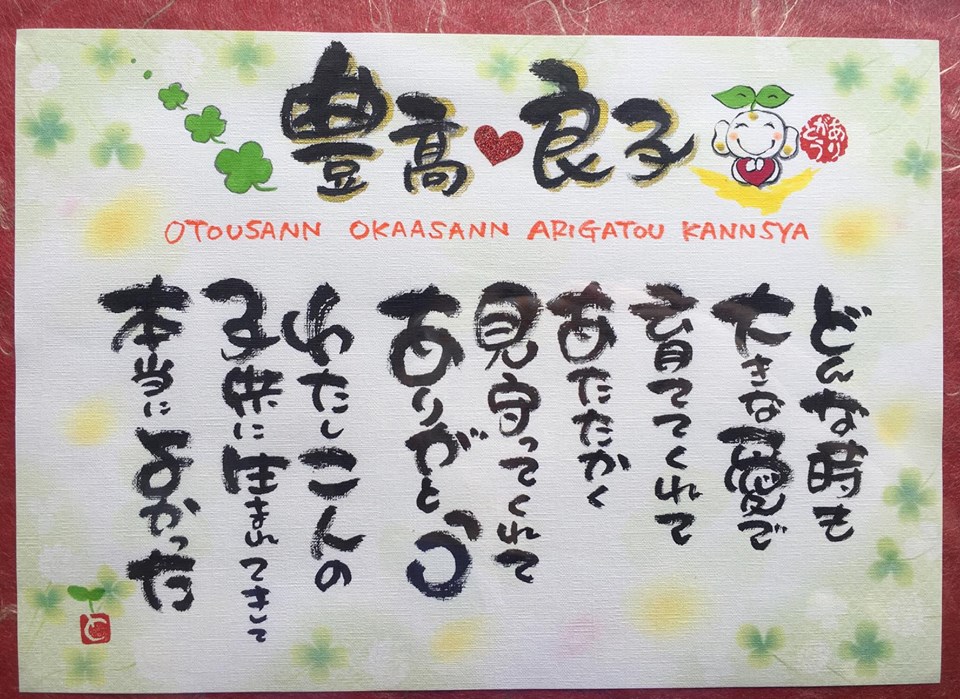 豊高♥良子
ありがとう
OTOUSANN OKAASANN ARIGATOU KANNSYA
どんな時も
大きな愛で
育ててくれて
あたたかく
見守ってくれて
ありがとう
わたしこんの
子供に生まれてきて
本当によかった
と